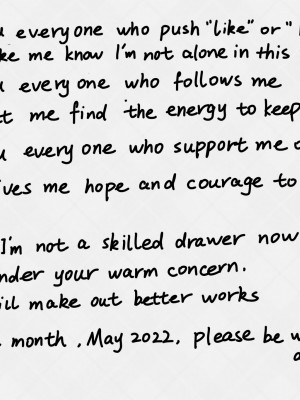 everyone who push "like" or "
me know I'm not alone in this
everyone who follows me
me find the energy to keep
everyone who support me
me hope and courage to
I'm not a skilled drawer now
your warm concern.
make out better works
month , May 2022, please be